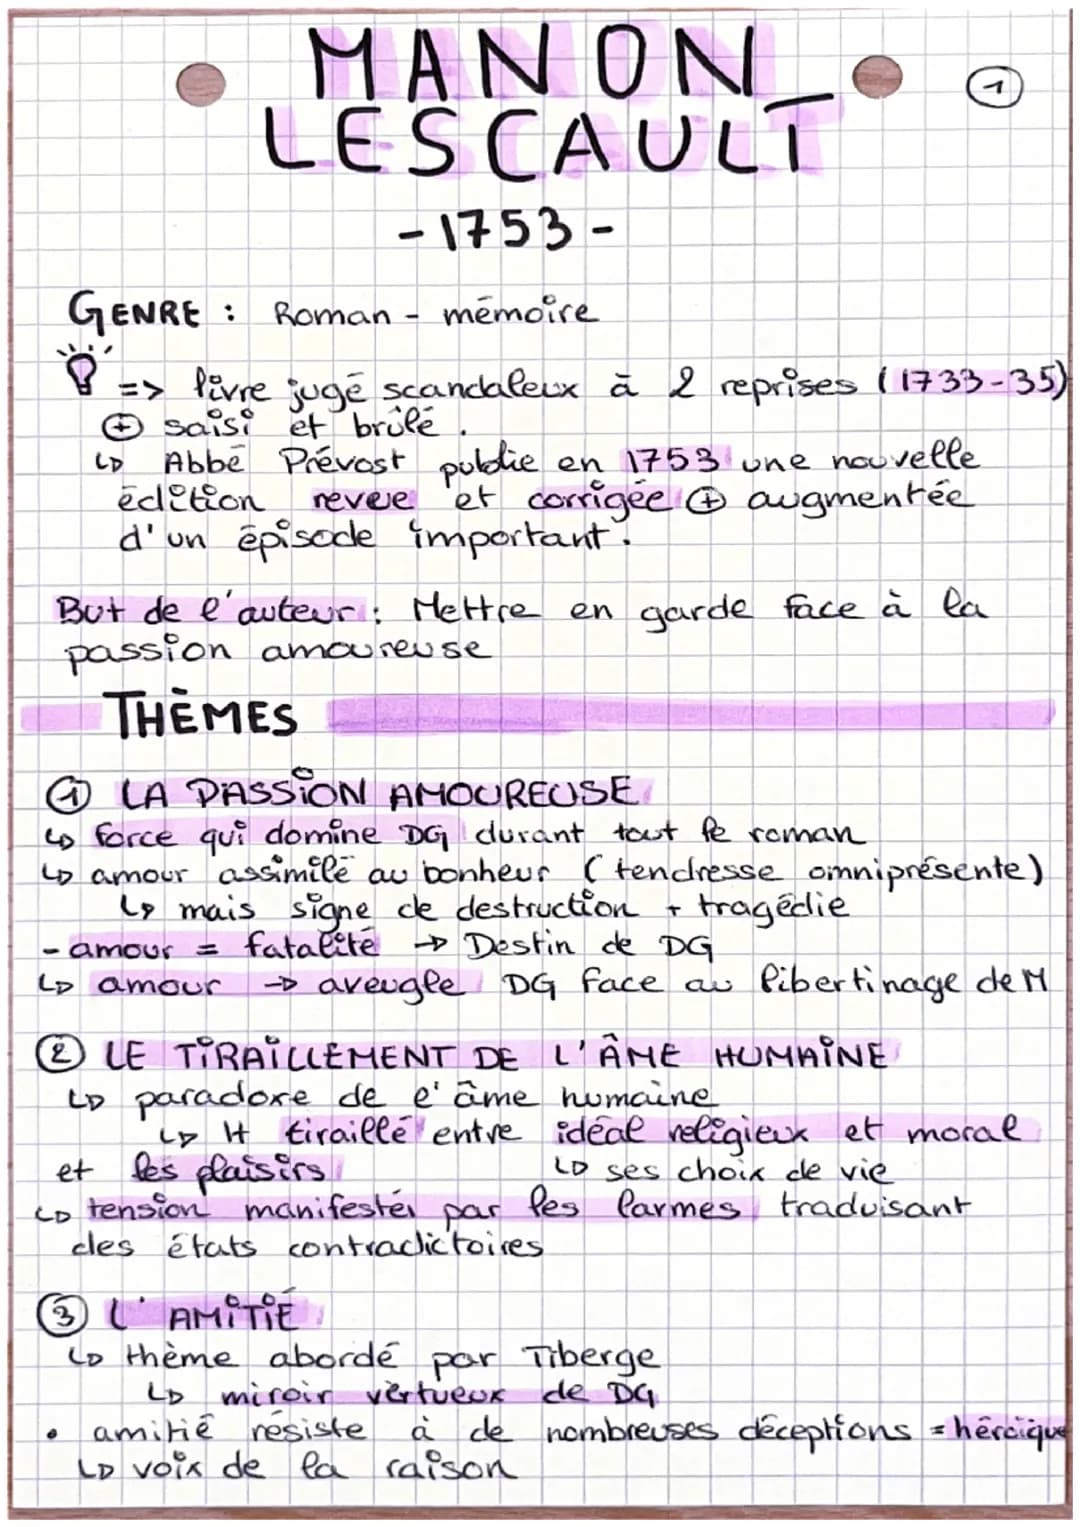 MANON
LESCAULT
1
- 1753 -
GENRE : Roman - mémoire
=> livre jugé scandaleux à 2 reprises (1733-35)
⊕ saisi et brûlé.
↳ Abbé Prévost publie en 1753 une nouvelle
édition revue et corrigée ⊕ augmentée
d'un épisode important.
But de l'auteur : Mettre en garde face à la
passion amoureuse
THÈMES
① LA PASSION AMOUREUSE
↳ force qui domine DG durant tout le roman
↳ amour assimilé au bonheur (tendresse omniprésente)
↳ mais signe de destruction + tragédie
- amour = fatalité → Destin de DG
↳ amour → aveugle DG face au libertinage de M
② LE TIRAILLEMENT DE L'ÂME HUMAINE
↳ paradoxe de l'âme humaine
↳ H tiraillé entre idéal religieux et moral
et les plaisirs ↳ ses choix de vie
↳ tension manifestée par les larmes traduisant
des états contradictoires
③ L'AMITIÉ
↳ thème abordé par Tiberge
↳ miroir vertueux de DG
• amitié résiste à de nombreuses déceptions = héroïque
↳ voix de la raison